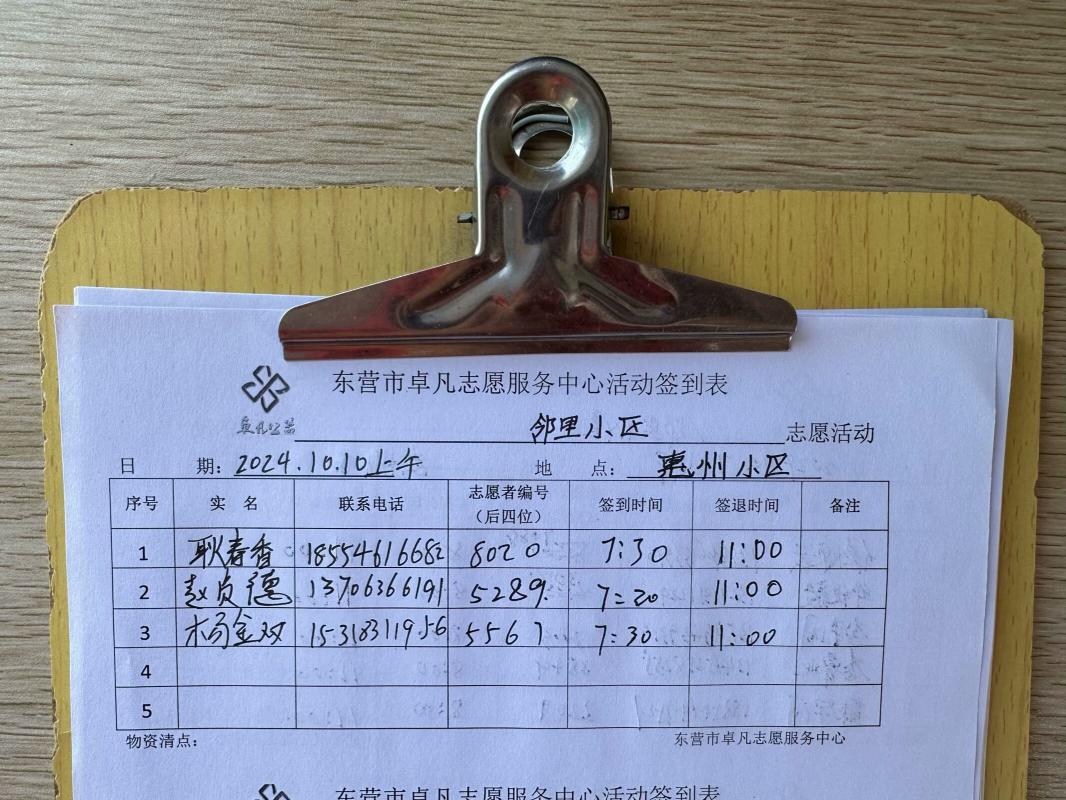 东营市卓凡志愿服务中心活动签到表
卓凡公益 邻里小区 志愿活动
日 期：2024.10.10上午 地 点：惠州小区
序号 实 名 联系电话 志愿者编号（后四位） 签到时间 签退时间 备注
1 耿春香 18554616682 8020 7:30 11:00
2 赵贞德 13706366191 5289 7:20 11:00
3 杨金双 15318311956 5567 7:30 11:00
4
5
物资清点： 东营市卓凡志愿服务中心
东营市卓凡志愿服务中心活动签到表